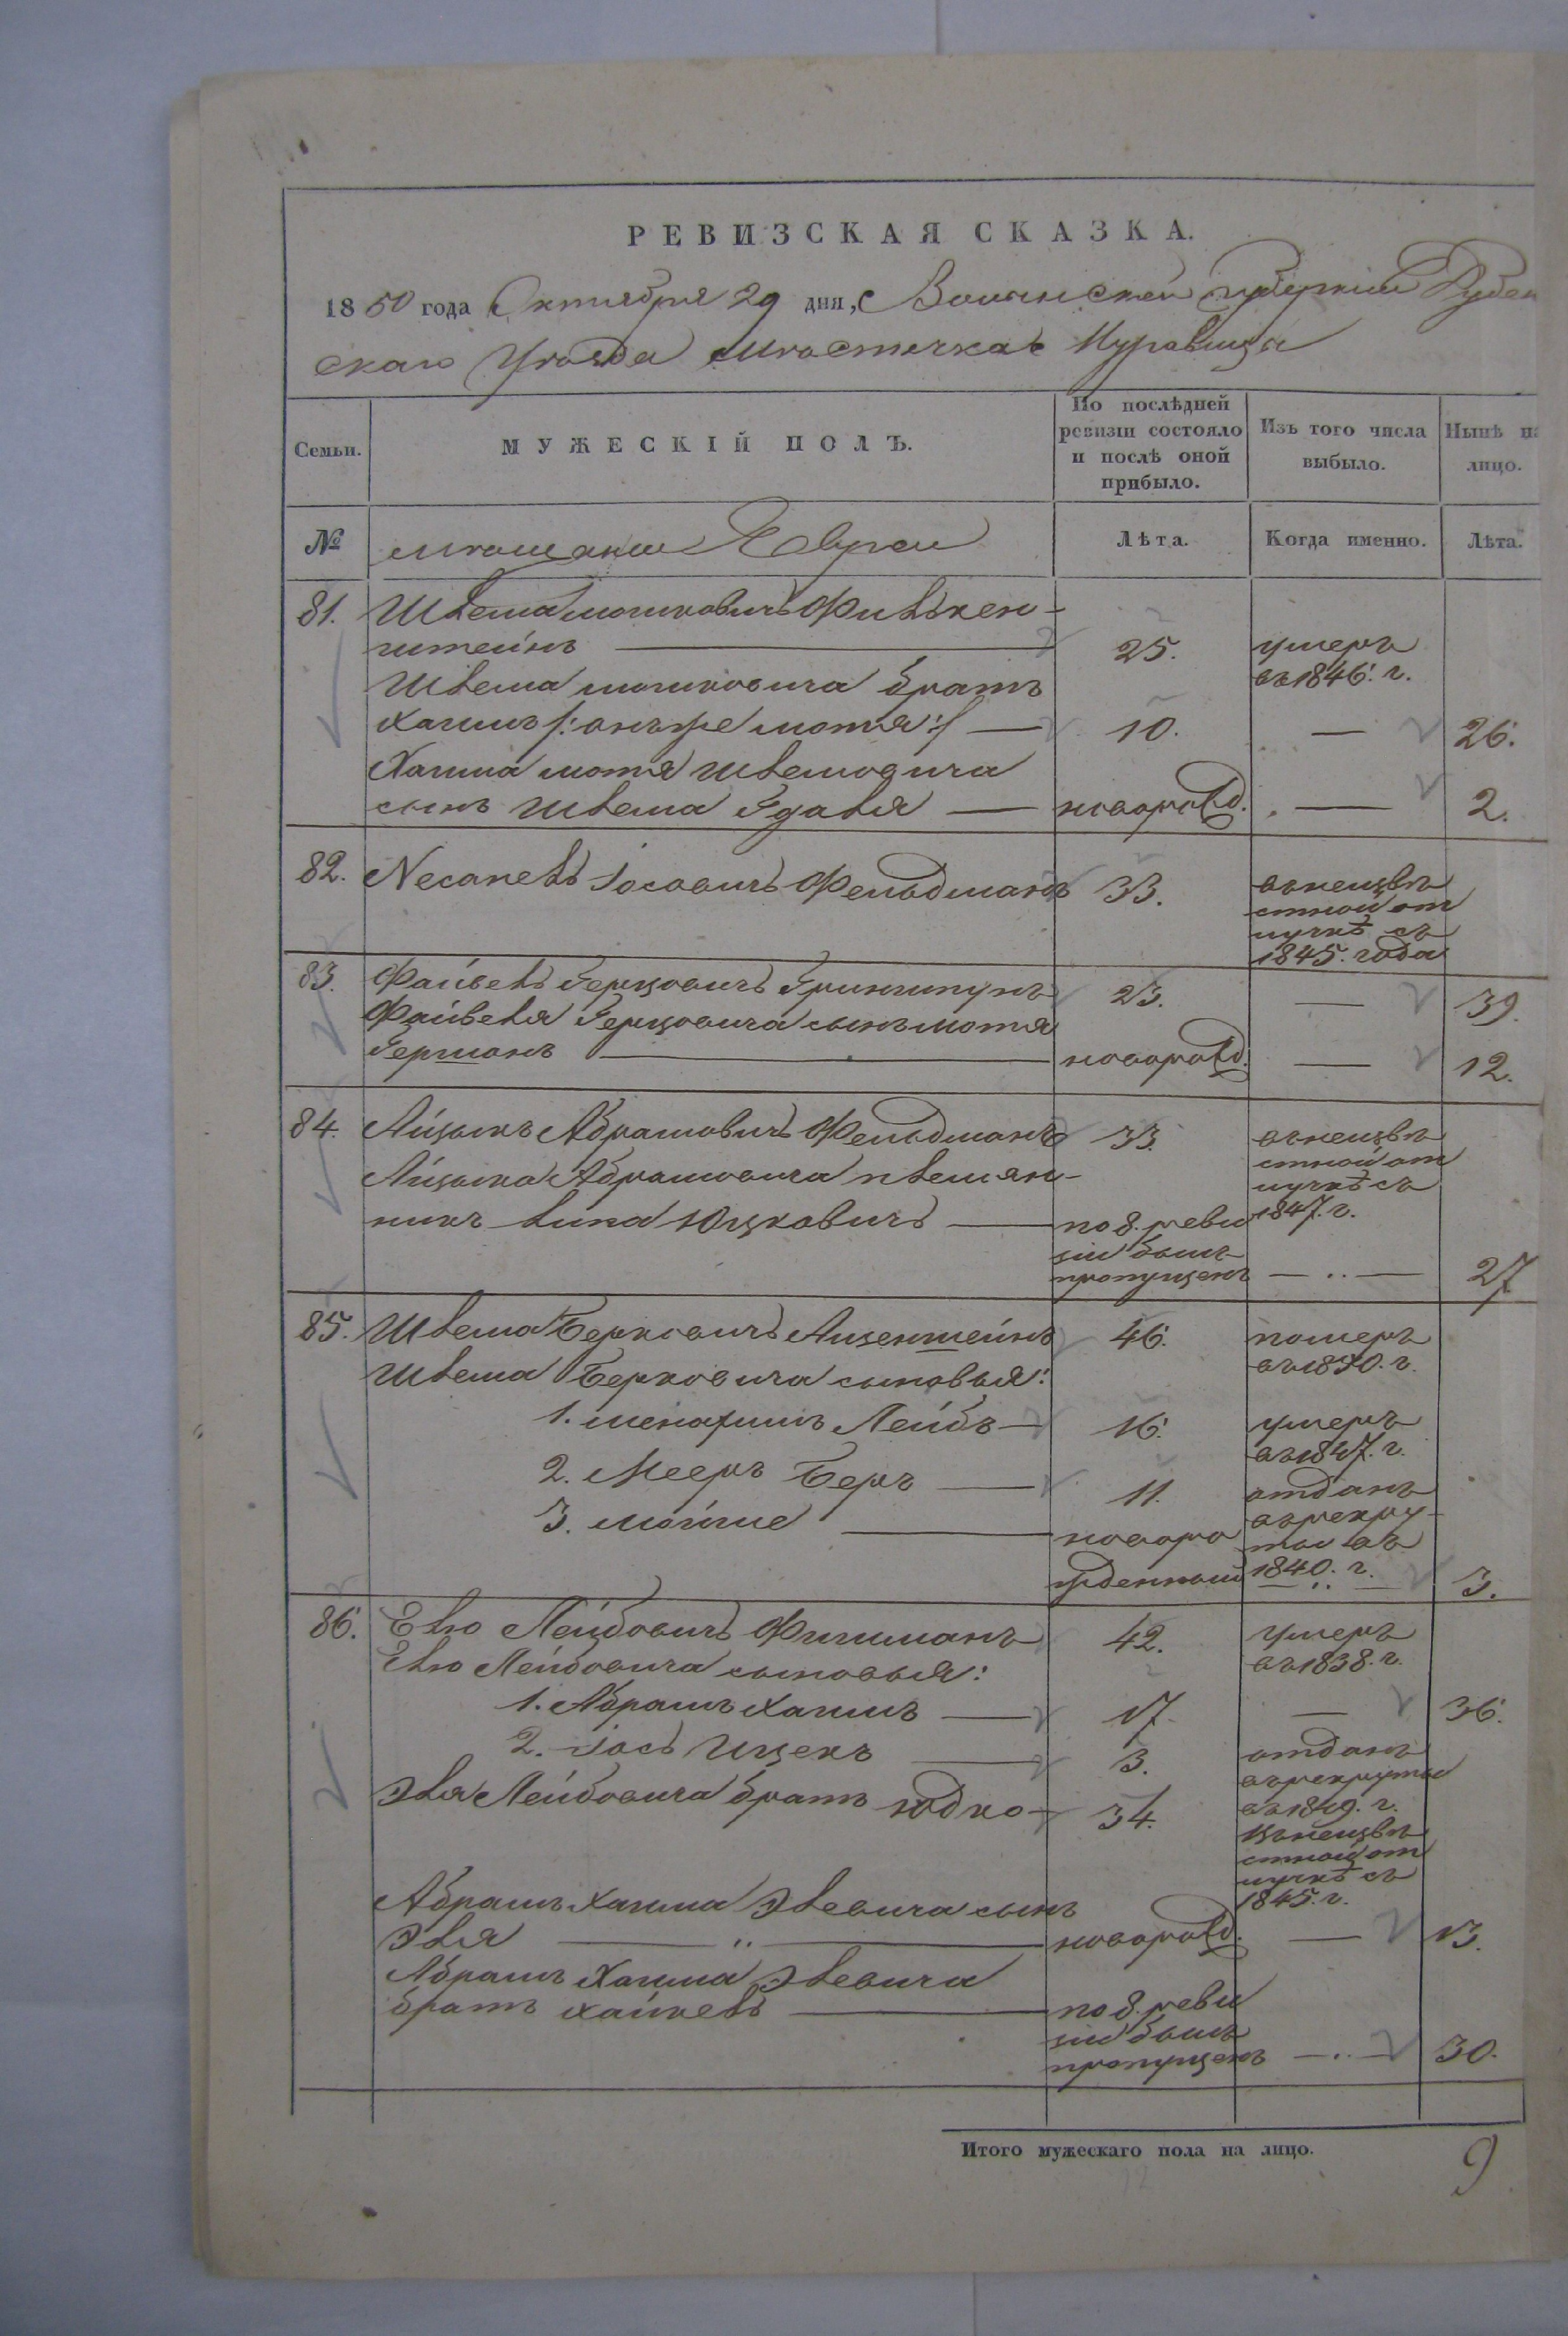 РЕВИЗСКАЯ СКАЗКА.
1850 года Октября 29 дня, Волынской Губерніи Дубен
скаго Уѣзда мѣстечка Муравицы
Семьи.
МУЖЕСКІЙ ПОЛЪ.
По послѣдней ревизіи состояло и послѣ оной прибыло.
Изъ того числа выбыло.
Нынѣ на лицо.
№
мѣщане Евреи
Лѣта.
Когда именно.
Лѣта.
81. Шлема Мошковичъ Финкен-
штейнъ — 25. умеръ
въ 1846. г.
Шлема Мошковича братъ
Хаимъ /: онъ же Мотя :/ — 10. — 26.
Хаима Мотя Шлемовича
сынъ Шлема Гдаля — новорожд. — 2.
82. Несанель Іосовичъ Фельдманъ 33. въ неизвѣ
стной от
лучкѣ съ
1845. года
83. Файвель Герцовичъ Гриншпунъ 23. — 39.
Файвеля Герцовича сынъ Мотя
Германъ — новорожд. — 12.
84. Айзыкъ Абрамовичъ Фельдманъ 33. въ неизвѣ
стной от
лучкѣ съ
1847. г.
Айзыка Абрамовича племян-
никъ Липа Юцковичъ — по 8. реви
зіи былъ
пропущенъ — 27
85. Шлема Берковичъ Айзенштейнъ 46. померъ
въ 1850. г.
Шлема Берковича сыновья:
1. Менахимъ Лейбъ — 16. умеръ
въ 1847. г.
2. Мееръ Беръ — 11. отданъ
въ рекру-
ты въ
1840. г.
3. Мойше — новоро
жденный — 3.
86. Элю Лейбовичъ Фишманъ 42. умеръ
въ 1838. г.
Элю Лейбовича сыновья:
1. Абрамъ Хаимъ — 17. — 36.
2. Іось Ицекъ — 3. отданъ
въ рекруты
въ 1849. г.
Эля Лейбовича братъ Юдко — 34. въ неизвѣ
стной от
лучкѣ съ
1845. г.
Абрамъ Хаима Элевича сынъ
Эля — новорожд. — 13.
Абрамъ Хаима Элевича
братъ Хайкель — по 8. реви
зіи былъ
пропущенъ — 30.
Итого мужескаго пола на лицо. 9